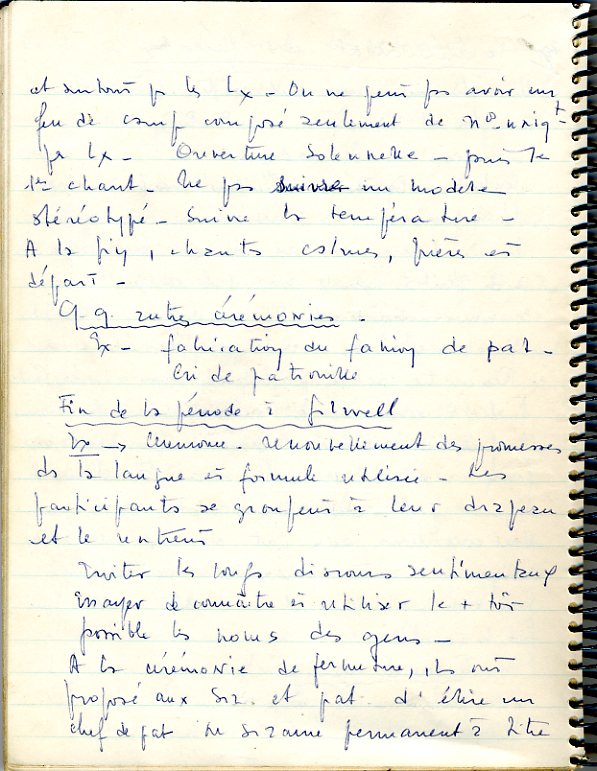 et surtout pr les Lx - On ne peut pas avoir un
feu de camp composé seulement de nos uniqt
pr Lx - Ouverture Solennelle - puis le
1er chant - Ne pas suivre un modèle
stéréotypé - Suivre la température -
A la fin, chants calmes, prières et
départ -
q.q. autres cérémonies.
Ex - fabrication du fanion de pat -
Cri de patrouille
Fin de la période à Gilwell
Ex → Cérémonie - renouvellement des promesses
ds la langue et formule utilisée - Les
participants se groupent à leur drapeau
et le
Eviter les longs discours sentimentaux
Essayer de connaître et utiliser le + tôt
possible les noms des gens -
A la cérémonie de fermeture, ils ont
proposé aux Siz. et pat. d'élire un
chef de pat de sizaine permanent à titre